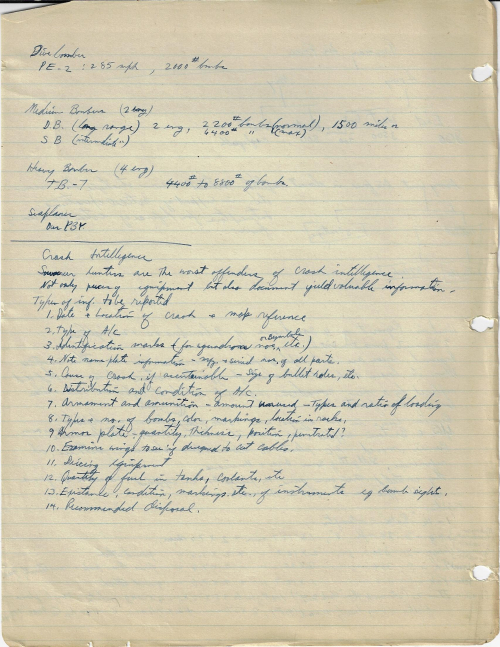 Dive bomber
PE-2 : 285 mph , 2000# bombs
Medium Bombers (2 eng)
D.B. (long range) 2 eng, 2200# bombs (normal), 1500 miles
4400# " (max)
S B (intermediate ")
Heavy Bomber (4 eng)
TB-7 4400# to 8800# of bombs
Seaplanes
Our PBY
Crash Intelligence
Souvenir hunters are the worst offenders of crash intelligence.
Not only pieces of equipment but also document yield valuable information.
Types of inf. to be reported
1. Date & Location of crash & map reference
2. Type of A/c
3. Identification marks & for squadron nos, etc.)
or Symbols
4. Note name plate information - mfg. & serial nos, of all parts.
5. Cause of Crash, if ascertainable - Size of bullet holes, etc.
6. Distribution and Condition of A/c.
7. Armament and ammunition - amount unused - types and ratio of loading
8. Types & no. of bombs, color, markings, location in racks,
9. Armor plate - quantity, thickness, position, penetrated?
10. Examine wings to see if designed to cut cables.
11. Deicing equipment
12. Quantity of fuel in tanks, coolants, etc
13. Existence, condition, markings, etc., of instruments eg bomb sight.
14. Recommended Disposal.